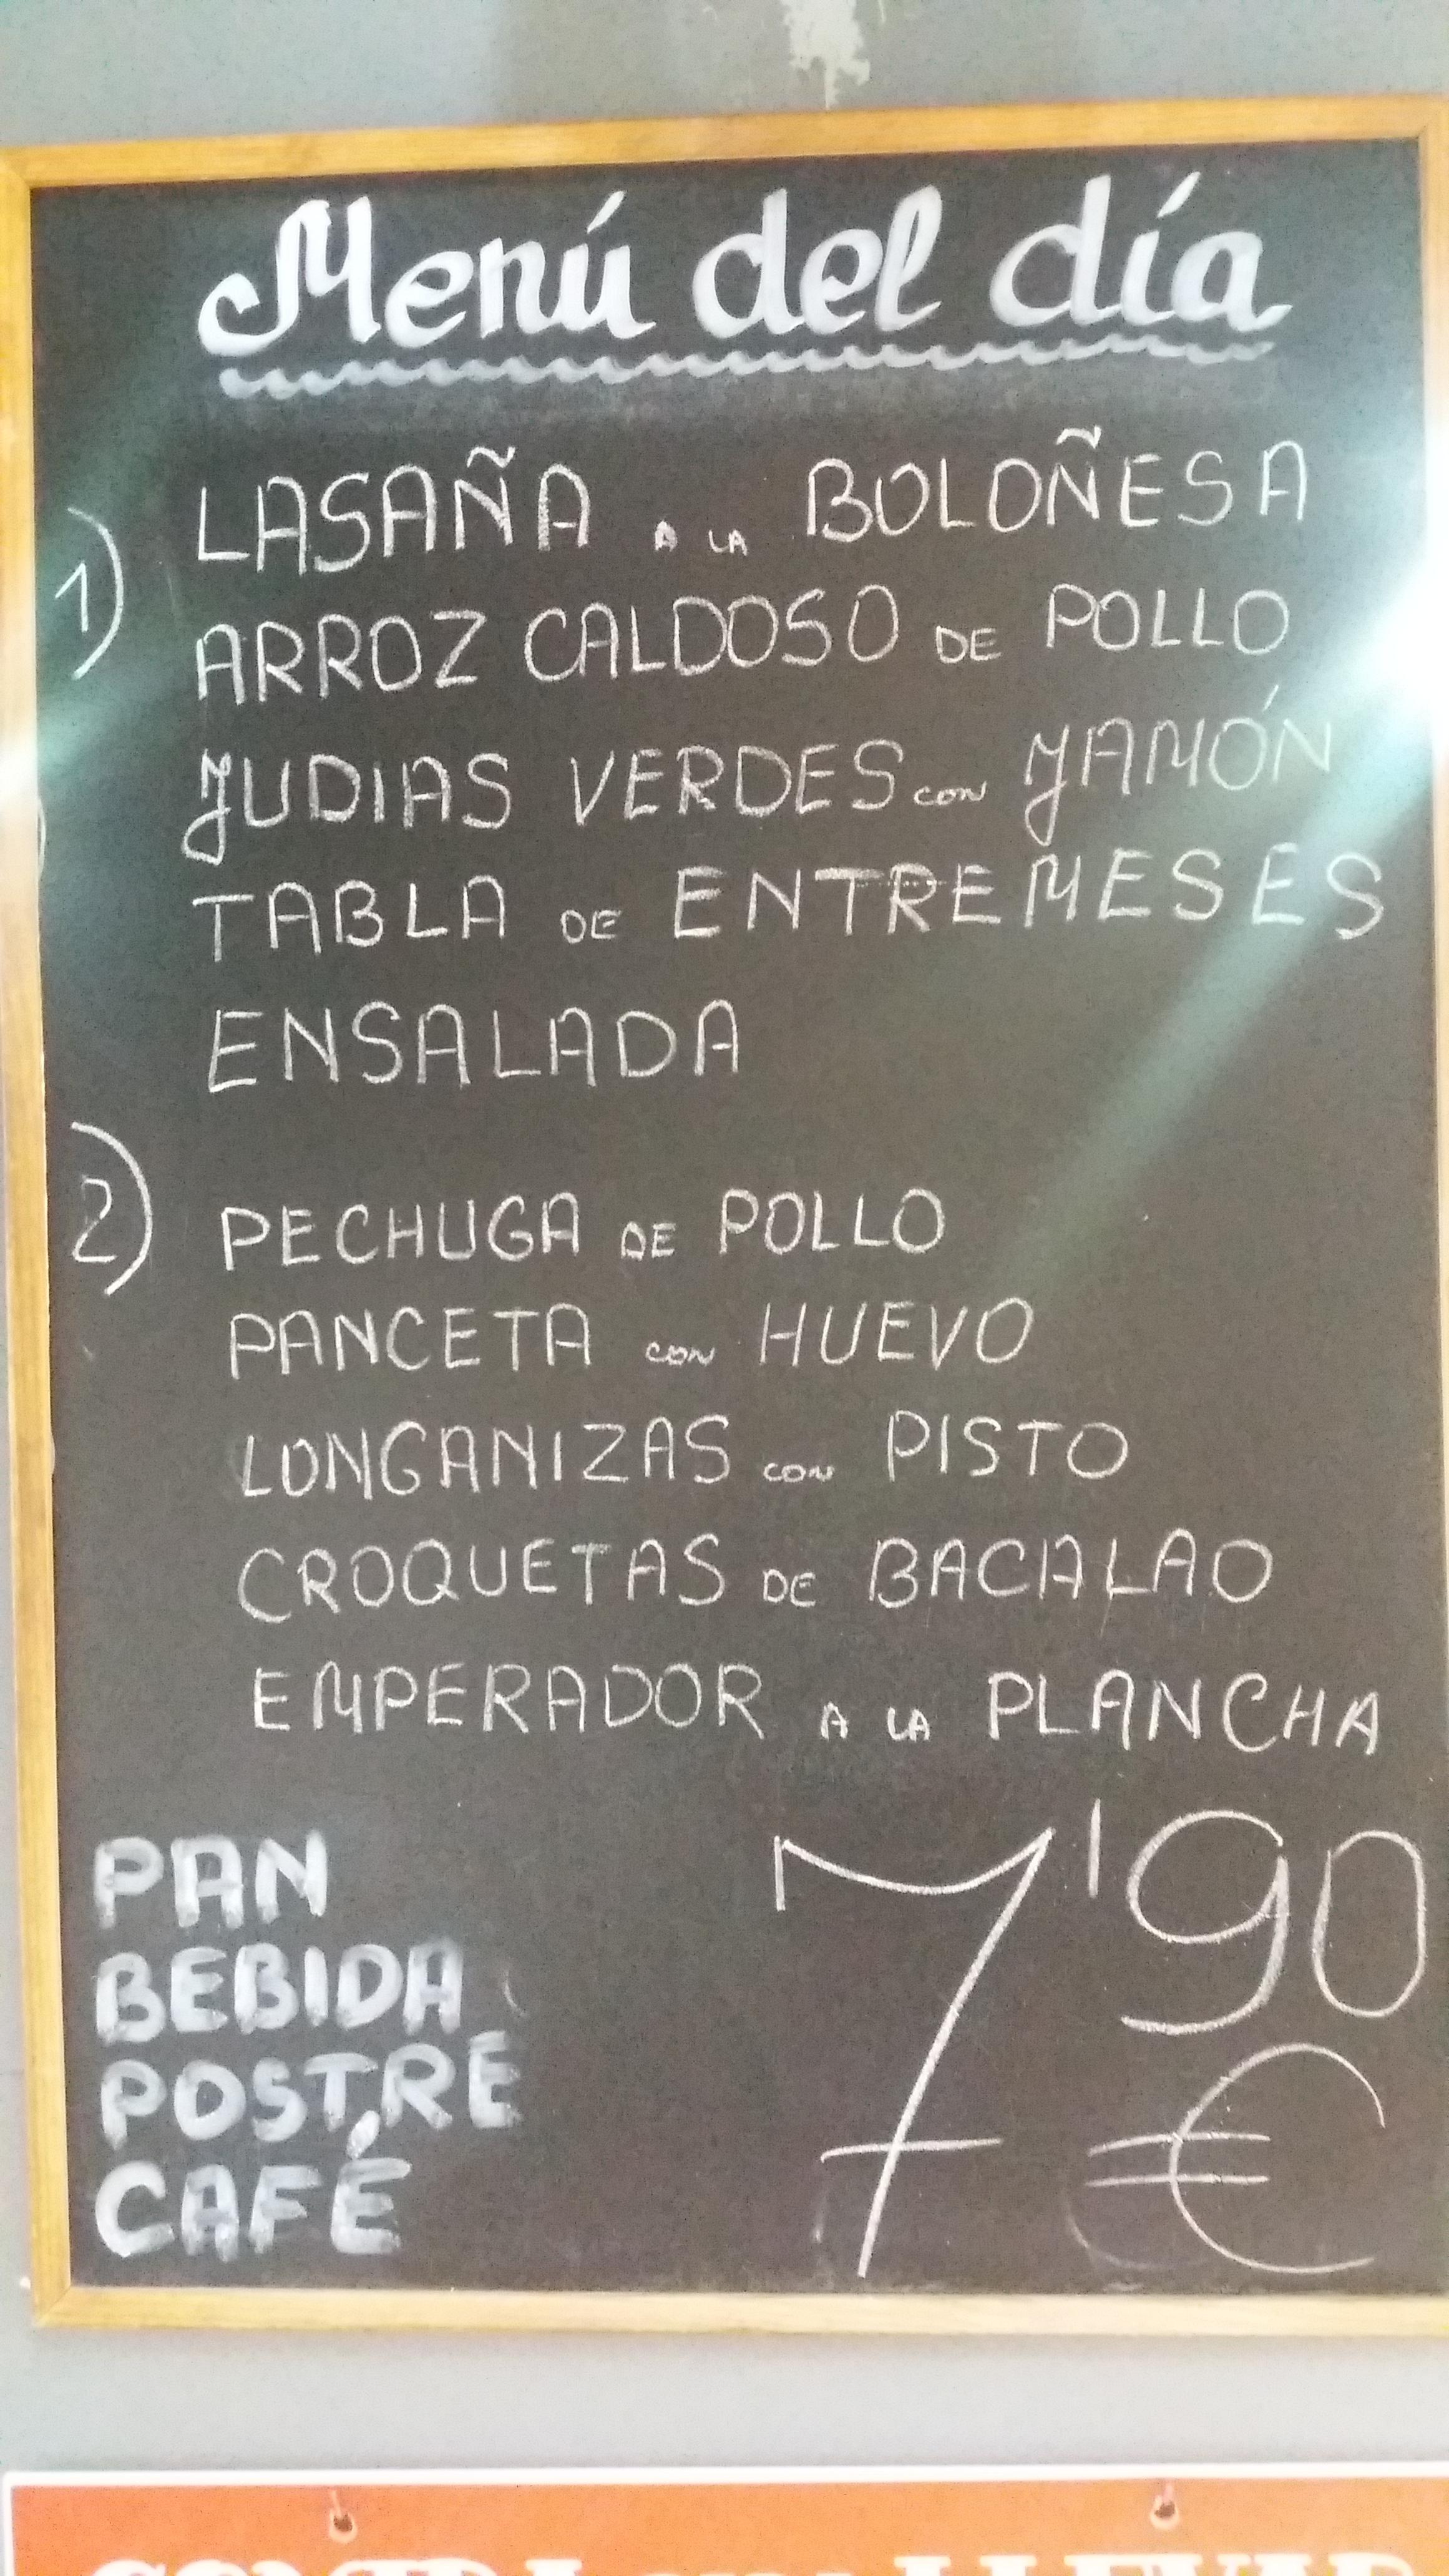 Menú del día
1) LASAÑA A LA BOLOÑESA
ARROZ CALDOSO DE POLLO
JUDIAS VERDES CON JAMÓN
TABLA DE ENTREMESES
ENSALADA
2) PECHUGA DE POLLO
PANCETA CON HUEVO
LONGANIZAS CON PISTO
CROQUETAS DE BACALAO
EMPERADOR A LA PLANCHA
PAN
BEBIDA
POSTRE
CAFÉ
7'90
€